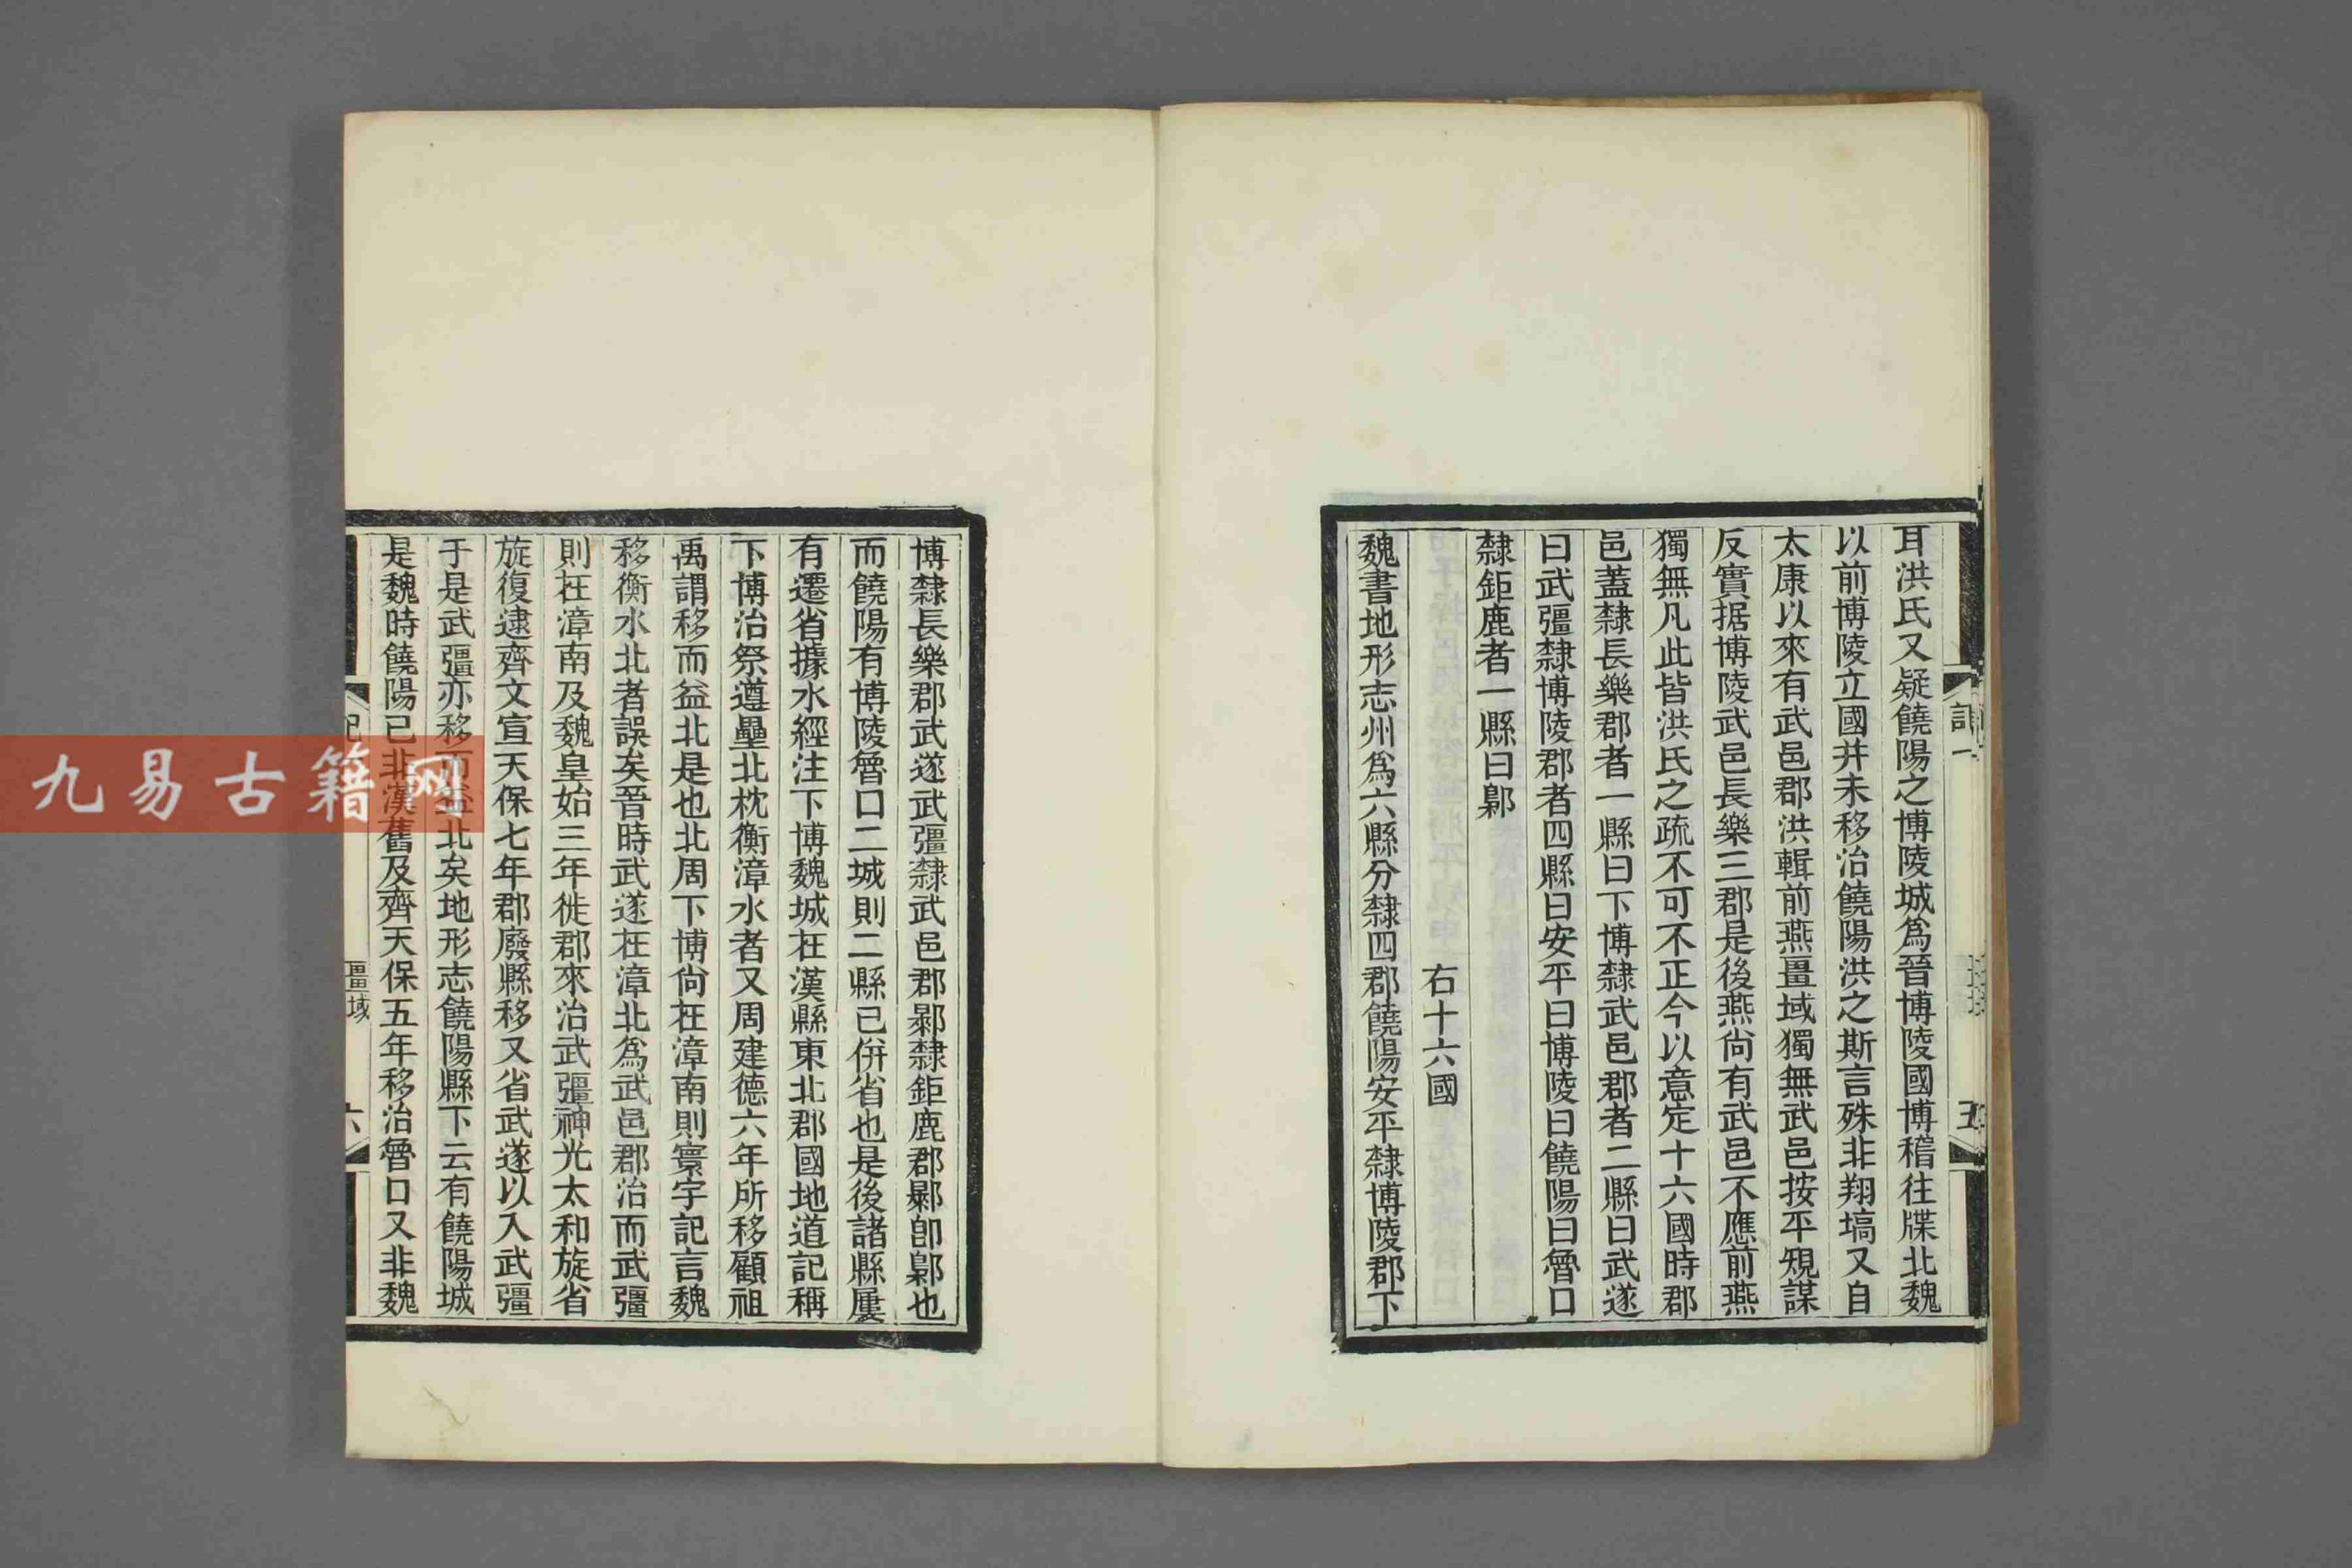 耳洪氏又疑饒陽之博陵城爲晉博陵國博稽往牒北魏
以前博陵立國并未移治饒陽洪之斯言殊非翔塙又自
太康以來有武邑郡洪輯前燕畺域獨無武邑按平規謀
反實据博陵武邑長樂三郡是後燕尙有武邑不應前燕
獨無凡此皆洪氏之疏不可不正今以意定十六國時郡
邑蓋隸長樂郡者一縣曰下博隸武邑郡者二縣曰武遂
曰武彊隸博陵郡者四縣曰安平曰博陵曰饒陽曰魯口
隸鉅鹿者一縣曰鄡
右十六國
魏書地形志州爲六縣分隸四郡饒陽安平隸博陵郡下
記一
五
博隸長樂郡武遂武彊隸武邑郡鄡隸鉅鹿郡鄡卽鄡也
而饒陽有博陵魯口二城則二縣已併省也是後諸縣屢
有遷省據水經注下博魏城在漢縣東北郡國地道記稱
下博治祭遵壘北枕衡漳水者又周建德六年所移顧祖
禹謂移而益北是也北周下博尙在漳南則寰宇記言魏
移衡水北者誤矣晉時武遂在漳北爲武邑郡治而武彊
則在漳南及魏皇始三年徙郡來治武彊神光太和旋省
旋復逮齊文宣天保七年郡廢縣移又省武遂以入武彊
于是武彊亦移而益北矣地形志饒陽縣下云有饒陽城
是魏時饒陽已非漢舊及齊天保五年移治魯口又非魏
記
畺域
六
九易古籍网